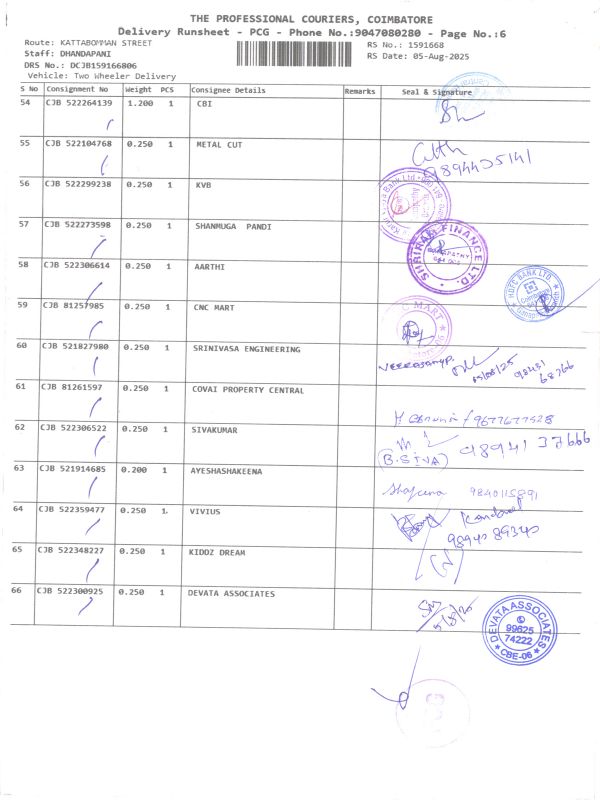 THE PROFESSIONAL COURIERS, COIMBATORE
Delivery Runsheet - PCG - Phone No.:9047080280 - Page No.:6
Route: KATTABOMMAN STREET RS No.: 1591668
Staff: DHANDAPANI RS Date: 05-Aug-2025
DRS No.: DCJB159166806
Vehicle: Two Wheeler Delivery
S No Consignment No Weight PCS Consignee Details Remarks Seal & Signature
54 CJB 522264139 1.200 1 CBI
55 CJB 522104768 0.250 1 METAL CUT
9894435141
56 CJB 522299238 0.250 1 KVB
57 CJB 522273598 0.250 1 SHANMUGA PANDI
SHRIRAM FINANCE LTD.
58 CJB 522306614 0.250 1 AARTHI
HDFC BANK LTD.
59 CJB 81257985 0.250 1 CNC MART
MART
60 CJB 521827980 0.250 1 SRINIVASA ENGINEERING
05/08/25
61 CJB 81261597 0.250 1 COVAI PROPERTY CENTRAL
9677677528
62 CJB 522306522 0.250 1 SIVAKUMAR
(B.SIVA) 9894137666
63 CJB 521914685 0.200 1 AYESHASHAKEENA
9840115891
64 CJB 522359477 0.250 1 VIVIUS
98940 89340
65 CJB 522348227 0.250 1 KIDDZ DREAM
66 CJB 522300925 0.250 1 DEVATA ASSOCIATES
DEVATA ASSOCIATES
99625
74222
CBE-06